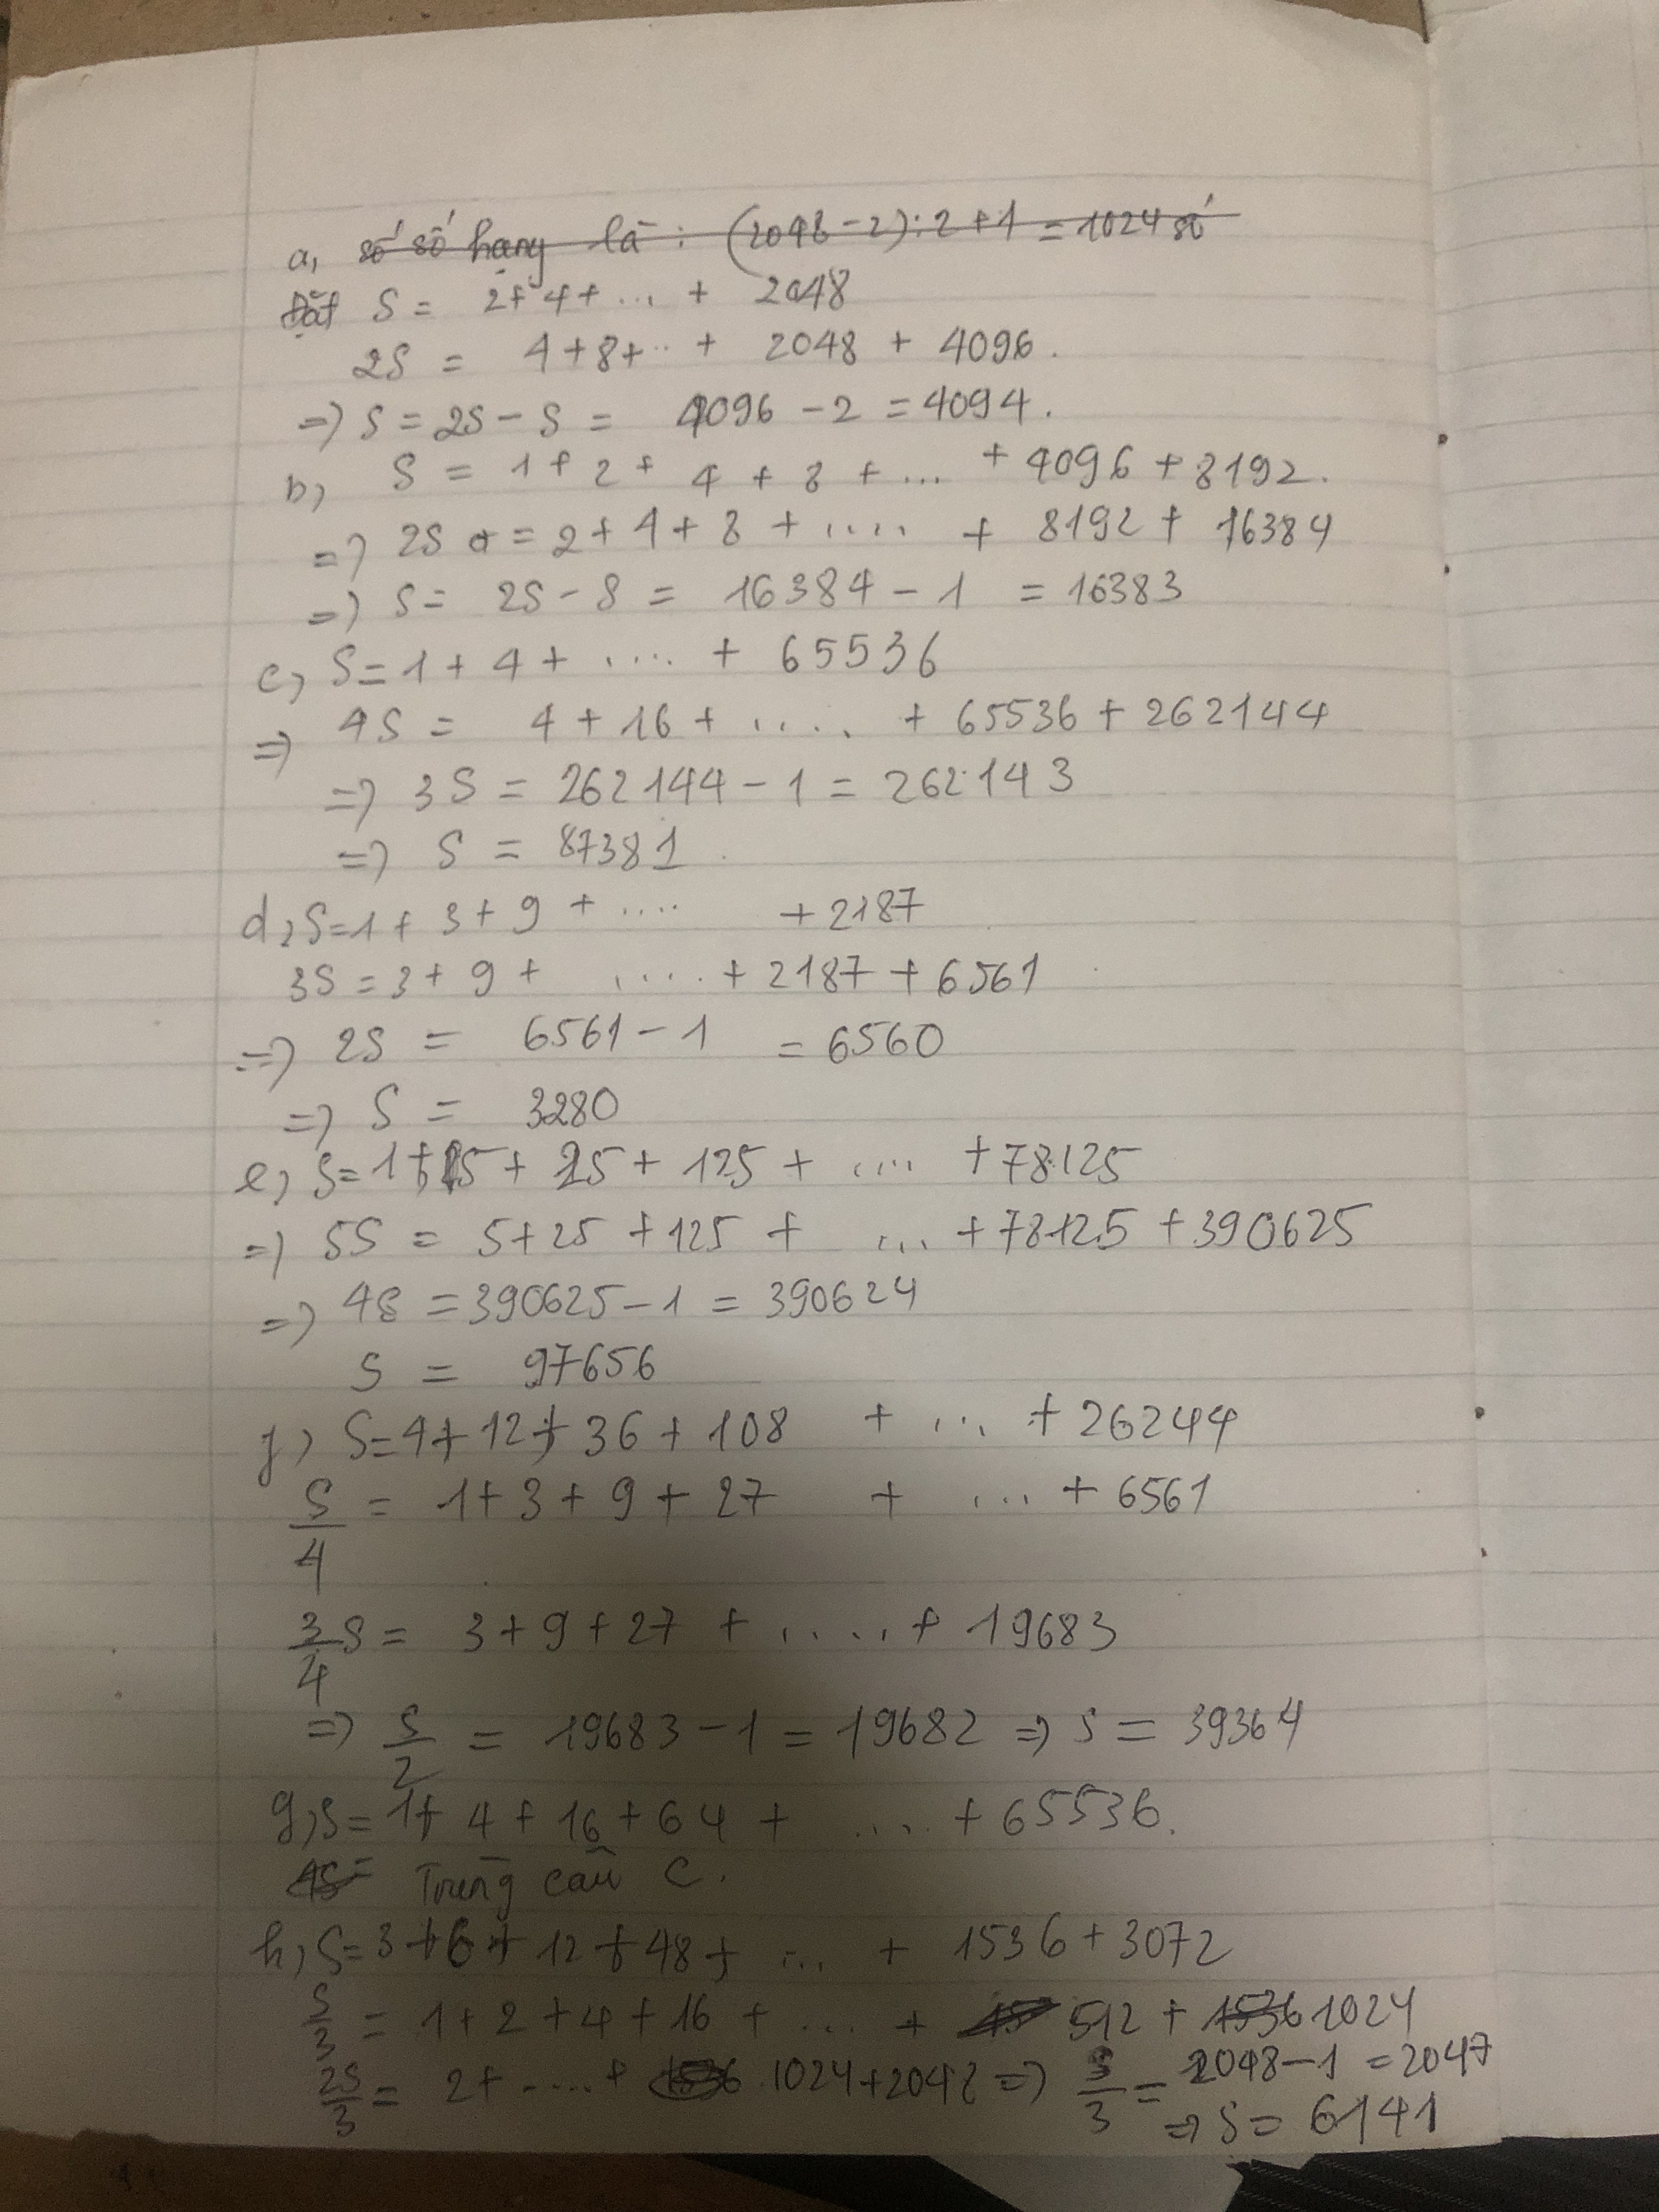 a, số số hạng là : (2048 - 2) : 2 + 1 = 1024 số
Đặt S = 2 + 4 + ... + 2048
2S = 4 + 8 + ... + 2048 + 4096.
=> S = 2S - S = 4096 - 2 = 4094.
b, S = 1 + 2 + 4 + 8 + ... + 4096 + 8192.
=> 2S = 2 + 4 + 8 + .... + 8192 + 16384
=> S = 2S - S = 16384 - 1 = 16383
c, S = 1 + 4 + .... + 65536
=> 4S = 4 + 16 + .... + 65536 + 262144
=> 3S = 262144 - 1 = 262143
=> S = 87381
d, S = 1 + 3 + 9 + .... + 2187
3S = 3 + 9 + .... + 2187 + 6561
=> 2S = 6561 - 1 = 6560
=> S = 3280
e, S = 1 + 5 + 25 + 125 + .... + 78125
=> 5S = 5 + 25 + 125 + ... + 78125 + 390625
=> 4S = 390625 - 1 = 390624
S = 97656
f, S = 4 + 12 + 36 + 108 + ... + 26244
S/4 = 1 + 3 + 9 + 27 + ... + 6561
3/4 S = 3 + 9 + 27 + ..... + 19683
=> S/2 = 19683 - 1 = 19682 => S = 39364
g, S = 1 + 4 + 16 + 64 + .... + 65536.
4S = Trùng câu c.
h, S = 3 + 6 + 12 + 48 + ... + 1536 + 3072
S/3 = 1 + 2 + 4 + 16 + .... + 512 + 1536 1024
2S/3 = 2 + ..... + 1536 1024 + 2048 => S/3 = 2048 - 1 = 2047
=> S = 6141